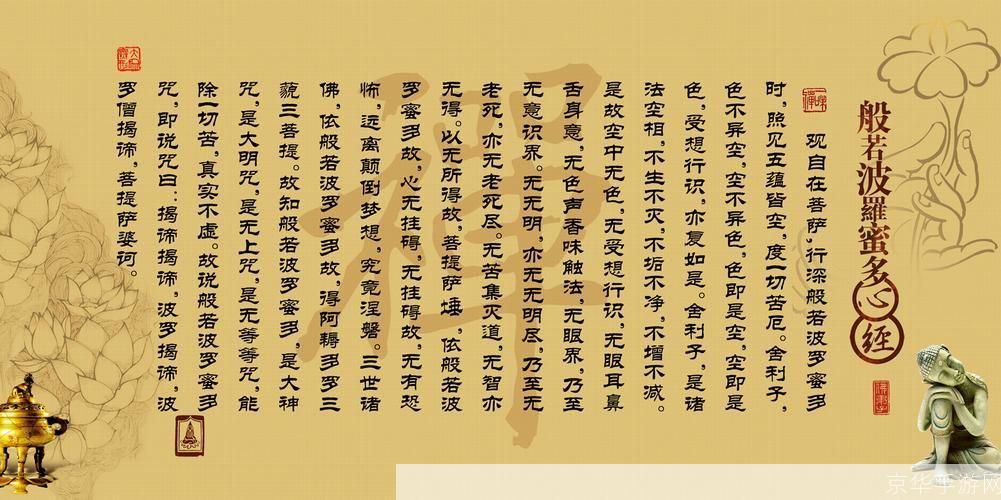 般若波羅蜜多心經
观自在菩萨,行深般若波罗蜜多
时,照见五蕴皆空,度一切苦厄。舍利子,
色不异空,空不异色,色即是空,空即是
色,受想行识,亦复如是。舍利子,是诸
法空相,不生不灭,不垢不净,不增不减。
是故空中无色,无受想行识,无眼耳鼻
舌身意,无色声香味触法,无眼界,乃至
无意识界。无无明,亦无无明尽,乃至无
老死,亦无老死尽。无苦集灭道,无智亦
无得。以无所得故,菩提萨埵,依般若波
罗蜜多故,心无挂碍,无挂碍故,无有恐
怖,远离颠倒梦想,究竟涅磐。三世诸
佛,依般若波罗蜜多故,得阿耨多罗三
藐三菩提。故知般若波罗蜜多,是大神
咒,是大明咒,是无上咒,是无等等咒,能
除一切苦,真实不虚。故说般若波罗蜜多
咒,即说咒曰:揭谛揭谛,波罗揭谛,波
罗僧揭谛,菩提萨婆诃。
禪
京华手游网